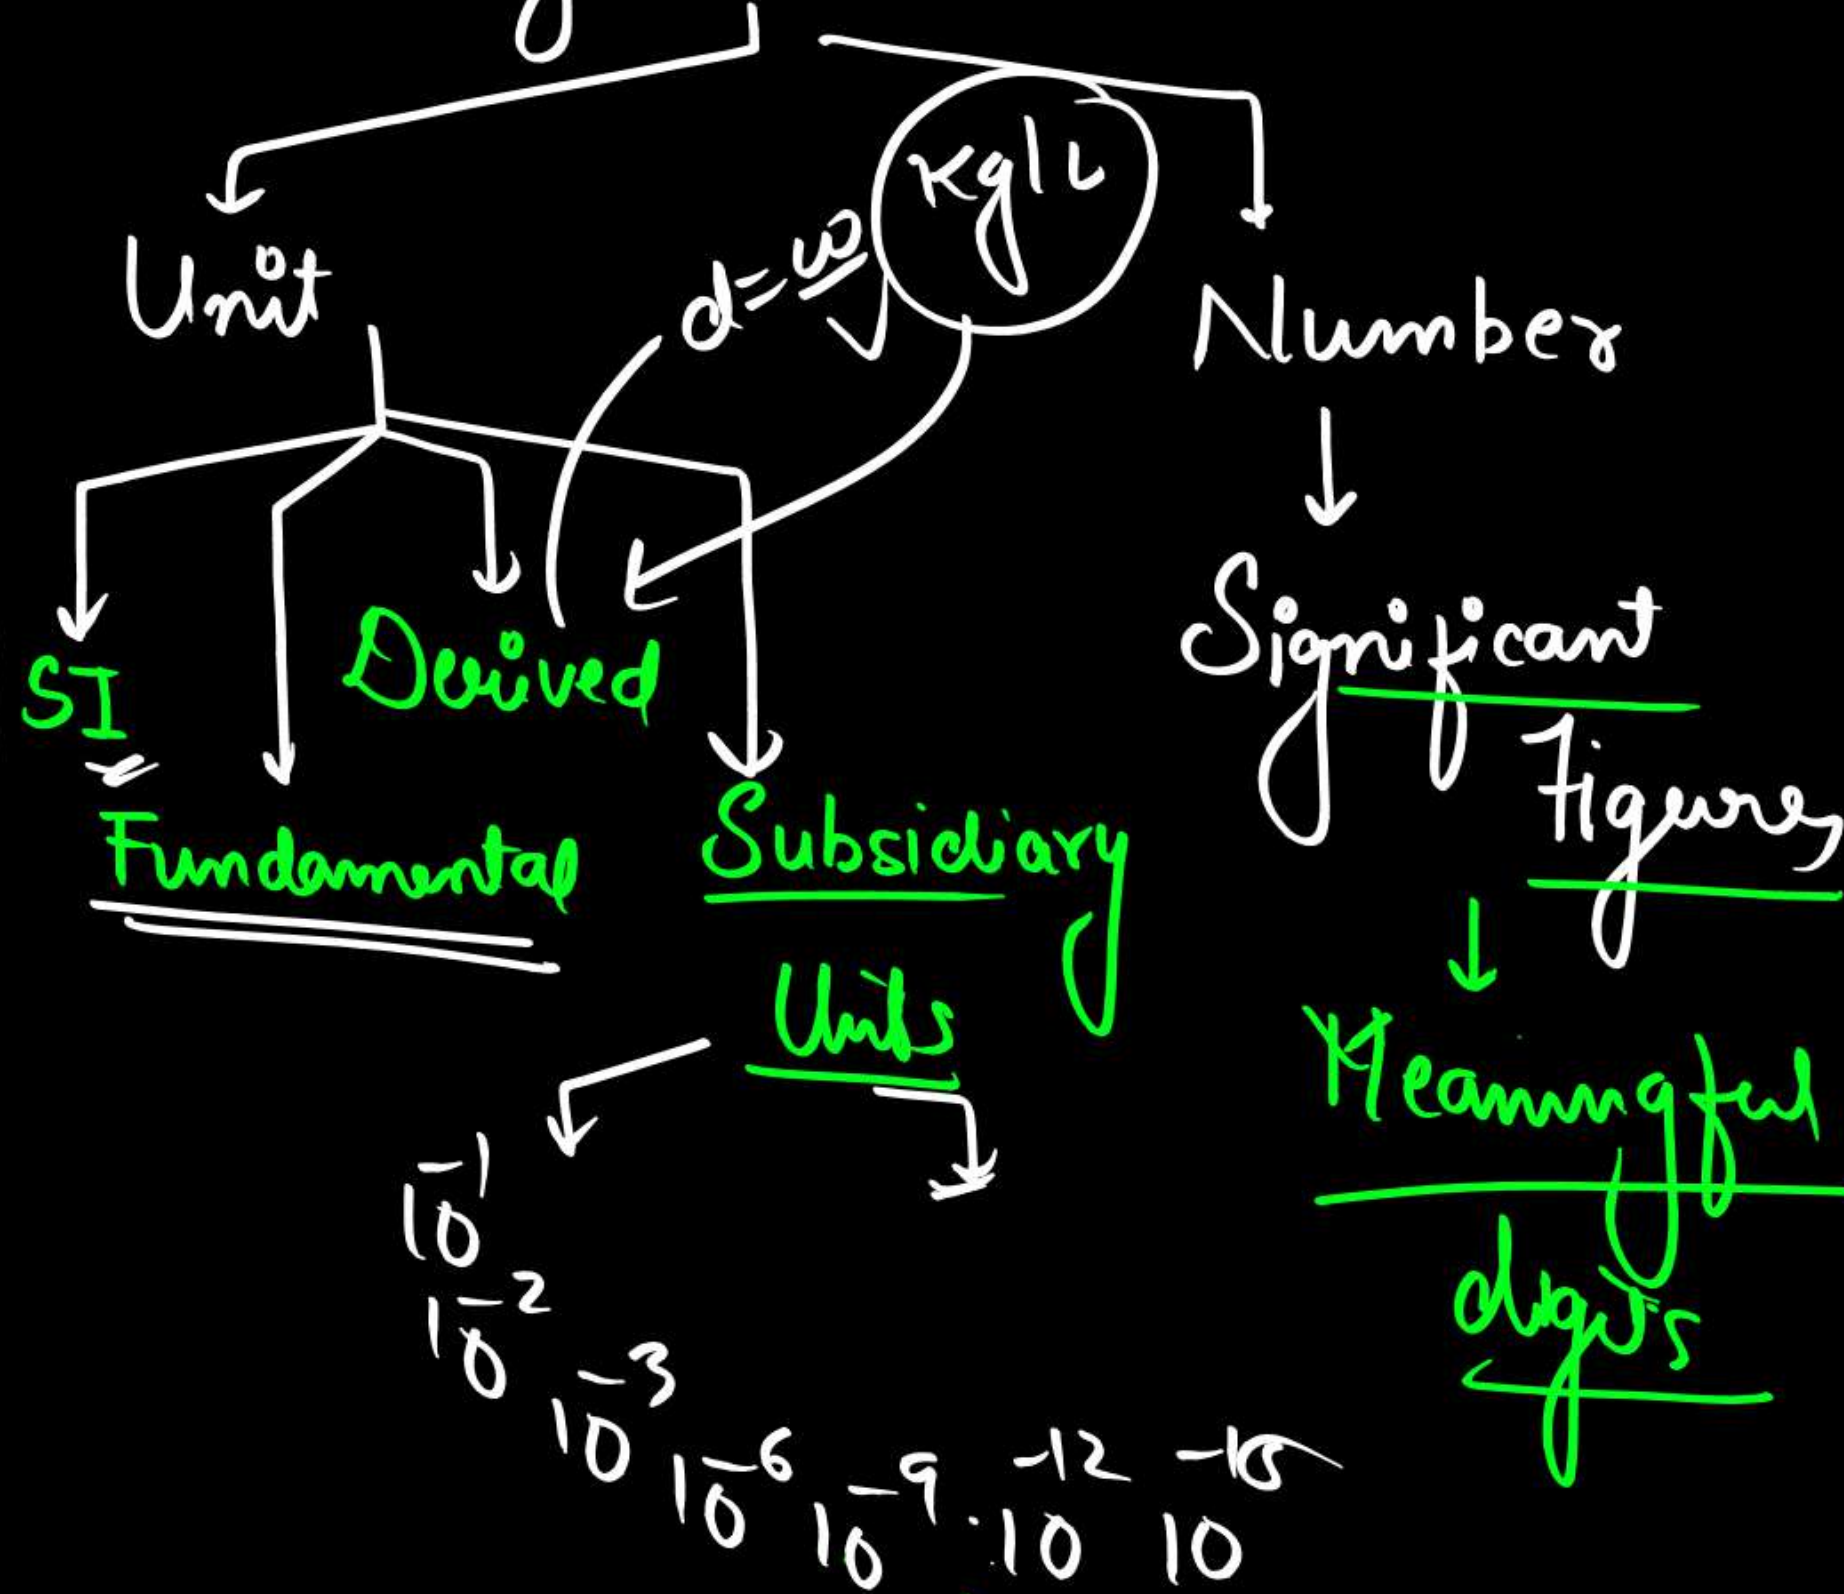 Kg/L
d = w/V
Unit
Number
SI
Derived
Fundamental
Subsidiary
Units
Significant
Figures
Meaningful
digits
10⁻¹
10⁻²
10⁻³
10⁻⁶ 10⁻⁹ 10⁻¹² 10⁻¹⁵